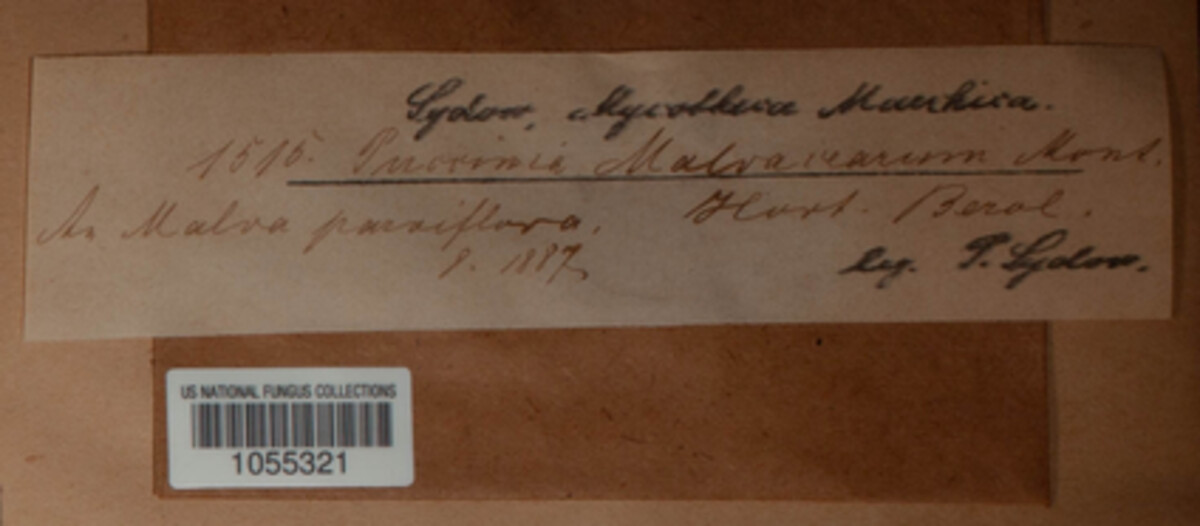 Sydow, Mycotheca Marchica.
1515. Puccinia Malvacearum Mont.
An Malva parviflora. Hort. Berol.
8. 1887 leg. P. Sydow.
US NATIONAL FUNGUS COLLECTIONS
1055321